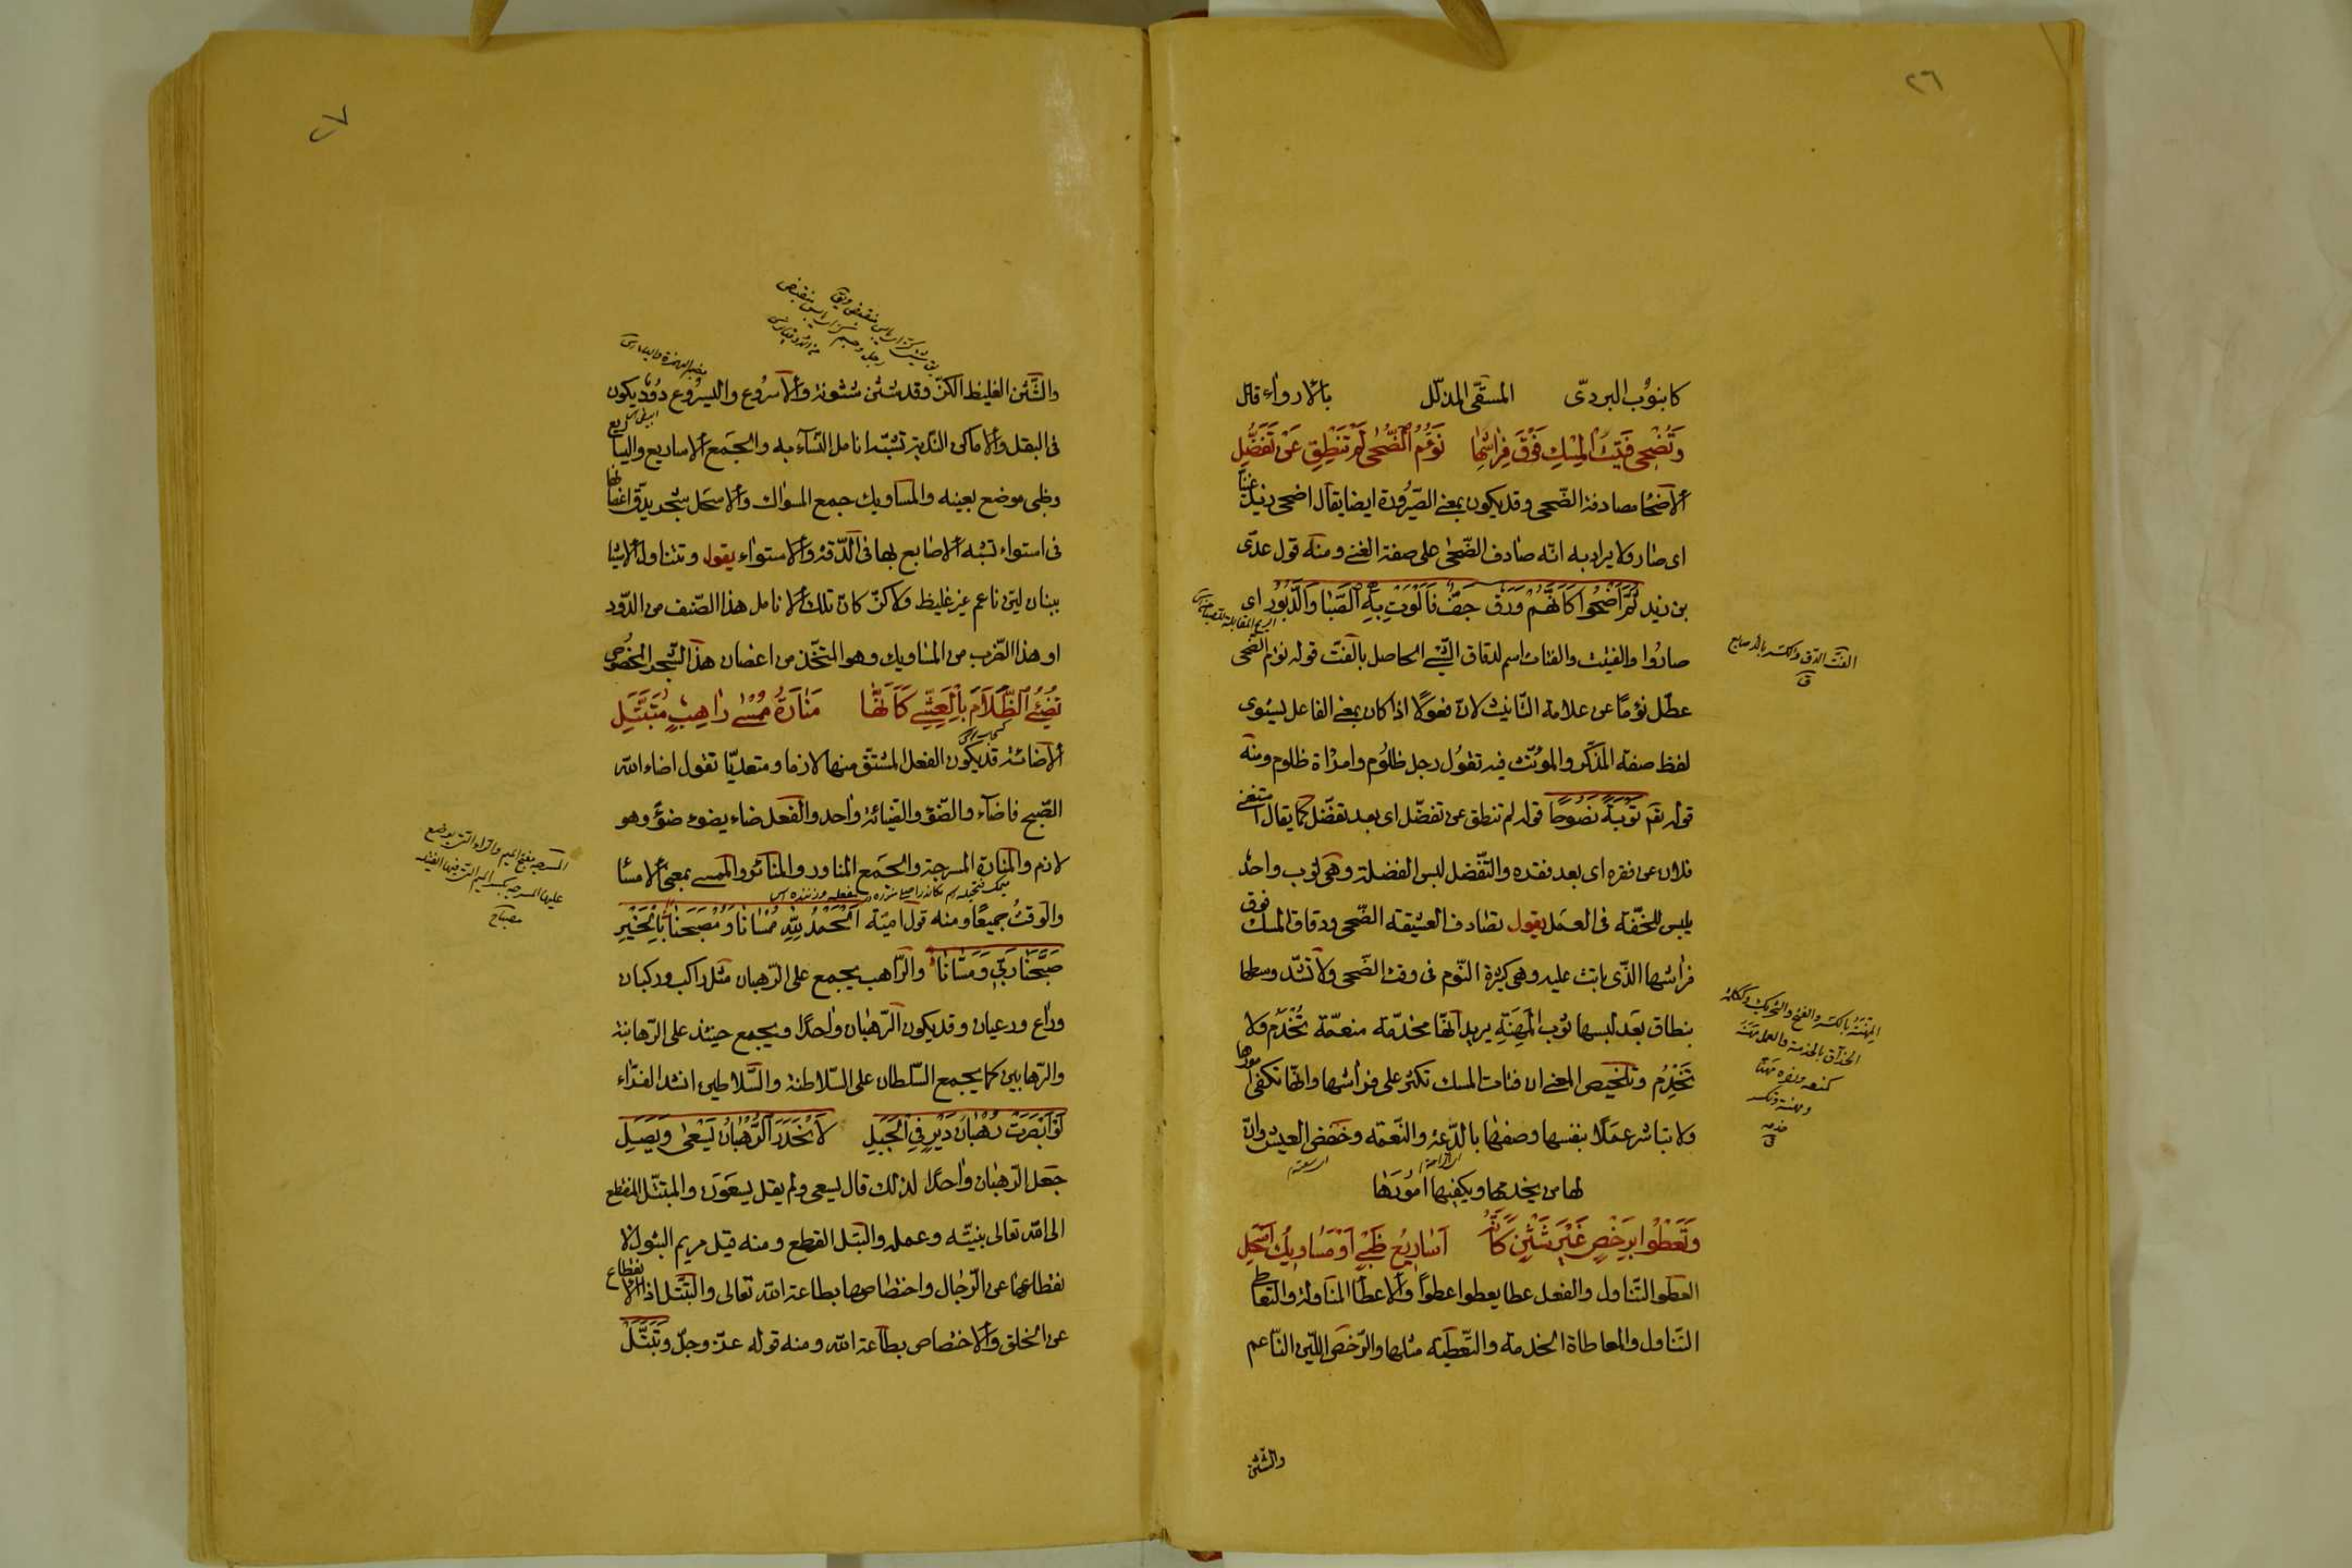 ٢٦
كانبوب البردىّ المسقّى المذلّل بالارواء قال
وَتُضْحِى فَتِيتُ الْمِسْكِ فَوْقَ فِرَاشِهَا نَؤُمُ الضُّحٰى لَمْ تَنْطِقْ عَنْ تَفَضُّلِ
الاضحا مصادفة الضّحى وقد يكون بمعنى الصّيرورة ايضا يقال اضحى زيد غنيّا
اى صار ولا يراد به انّه صادف الضّحى على صفة الغنى ومنه قول عدىّ
بن زيد ثُمَّ اَضْحَوا كَاَنَّهُمْ وَرَقٌ جَفَّ فَاَلْوَتْ بِهِ الصَّبَا وَالدَّبُورُ اى
صاروا والفتيت والفتات اسم لدقاق الشّئ الحاصل بالفتّ قوله نؤم الضّحى
عطّل نؤما عن علامة التّانيث لانّ فعولا اذا كان بمعنى الفاعل يستوى
لفظ صفة المذكّر والمؤنّث فيه تقول رجل ظلوم وامراة ظلوم ومنه
قوله تعم تَوْبَةً نَصُوحًا قوله لم تنطق عن تفضّل اى بعد تفضّل كما يقال استغنى
فلان عن فقره اى بعد فقده والتّفضّل لبس الفضلة وهى ثوب واحد
يلبس للخفّة فى العمل يقول تصادف العشيقة الضّحى ودقاق المسك فوق
فراشها الّذى باتت عليه وهى كثيرة النّوم فى وقت الضّحى ولا تشدّ وسطها
بنطاق بعد لبسها ثوب المهنة يريد انّها مخدّمة منعّمة تُخْدَمُ ولا
تَخْدِمُ وتلخيص المعنى ان فتات المسك تكثر على فراشها وانّها تكفى امورها
ولا تباشر عملا بنفسها وصفها بالدّعة والنّعمة وخفض العيش وانّ
لها من يخدمها ويكفيها امورها
وَتَعْطُوا بِرَخْصٍ غَيْرِ شَثْنٍ كَاَنَّهُ اَسَارِيعُ ظَبْىٍ اَوْ مَسَاوِيكُ اَسْحِلِ
العطو التّناول والفعل عطا يعطوا عطوًا والاعطا المناولة والتعاطى
التّناول والمعاطاة الخدمة والتّعطية مثلها والرّخص اللّين النّاعم
والشّثن
الفتّ الدق والكسر بالاصابع
ق
المهنة بالكسر والفتح والتحريك وككلمة
الحذق بالخدمة والعمل مهنه
كمنعه ونصره مهنا
ومهنة وتكسر
خدمه
ق
٢٧
والشَّثْن الغليظ الكزّ وقد شثن شثونة والاسروع واليسروع دُودٌ يكون
فى البقل والاماكن النّديّة تشبّه انامل النّساء به والجمع الاساريع واليساريع
وظبى موضع بعينه والمساويك جمع المسواك والاسحل شجر يدقّ اغصانها
فى استواء تشبه الاصابع بها فى الدّقة والاستواء يقول وتتناول الاشيا
ببنان لين ناعم غير غليظ ولا كزّ كانّ تلك الانامل هذا الصّنف من الدّود
او هذا الضّرب من المساويك وهو المتّخذ من اغصان هذا الشّجر المخصوص
تُضِئُ الظَّلَامَ بِالْعَشِىِّ كَاَنَّهَا مَنَارَةُ مُمْسٰى رَاهِبٍ مُتَبَتِّلِ
الاضائة قد يكون الفعل المشتقّ منها لازما ومتعديّا تقول اضاء الله
الصّبح فاضآء والضّوٴ والضّيائة واحد والفعل ضاء يضوء ضوٴ وهو
لازم والمنارة المسرجة والجمع المناور والمنائر والممسى بمعنى الامسا
والوقت جميعًا ومنه قول اميّة اَلْحَمْدُ لِلّٰهِ مُمْسَانَا وَمُصْبَحَنَا بِالْخَيْرِ
صَبَّحَنَا رَبِّى وَمَسَّانَا والرّاهب يجمع على الرّهبان مثل راكب وركبان
وراع ورعيان وقد يكون الرّهبان واحدًا ويجمع حينئذ على الرّهابنة
والرّهابين كما يجمع السّلطان على السّلاطنة والسّلاطين انشد الفرّاء
لَوْ اَبْصَرَتْ رُهْبَانَ دَيْرٍ فِى الْجَبَلِ لَانْحَدَرَ الرُّهْبَانُ يَسْعٰى وَيَصِلِ
جعل الرّهبان واحدًا لذلك قال يسعى ولم يقل يسعون والمبتّل المنقطع
الى الله تعالى بنيّته وعمله والبتل القطع ومنه قيل مريم البتول لا
نقطاعها عن الرّجال واختصاصها بطاعة الله تعالى والتبتّل اذا الانقطاع
عن الخلق والاختصاص بطاعة الله ومنه قوله عزّ وجلّ وَتَبَتَّلْ
المسرجه بفتح الميم والراء التى يوضع
عليها المسرجه بكسر الميم التى فيها الفتيله
مصباح